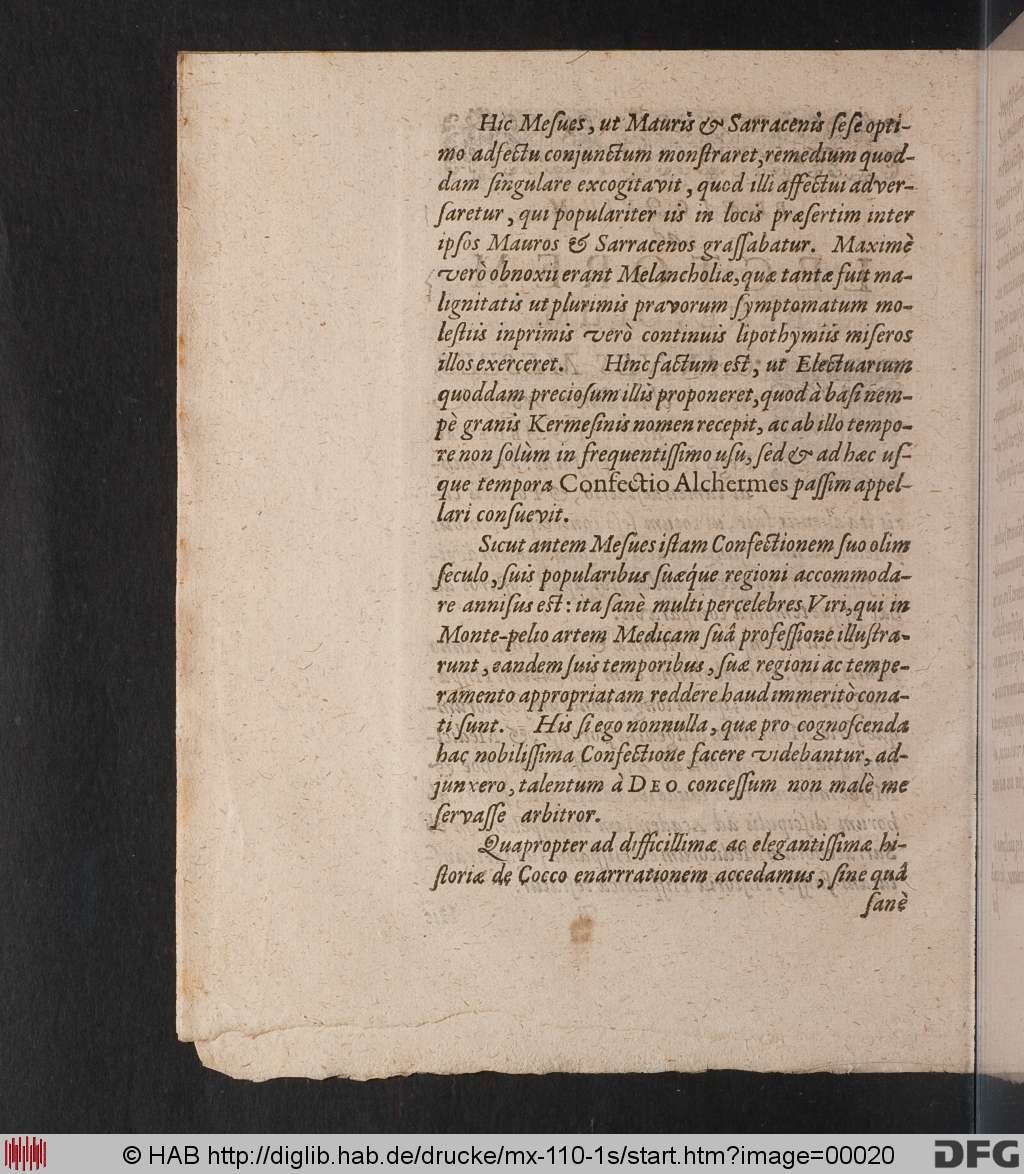 Hic Meſues, ut Mauris & Sarracenis ſeſe opti-
mo adfectu conjunctum monſtraret, remedium quod-
dam ſingulare excogitavit, quod illi affectui adver-
ſaretur, qui populariter iis in locis præſertim inter
ipſos Mauros & Sarracenos graſſabatur. Maximè
verò obnoxii erant Melancholiæ, quæ tantæ fuit ma-
lignitatis ut plurimis pravorum ſymptomatum mo-
leſtiis inprimis verò continuis lipothymiis miſeros
illos exerceret. Hinc factum est, ut Electuarium
quoddam precioſum illis proponeret, quod à baſi nem-
pè granis Kermeſinis nomen recepit, ac ab illo tempo-
re non ſolùm in frequentiſſimo uſu, ſed & ad hæc uſ-
que tempora Confectio Alchermes paſſim appel-
lari conſuevit.
Sicut antem Meſues iſtam Confectionem ſuo olim
ſeculo, ſuis popularibus ſuæq́ue regioni accommoda-
re anniſus est: ita ſanè multi percelebres Viri, qui in
Monte-pelio artem Medicam ſuâ profeſſione illuſtra-
runt, eandem ſuis temporibus, ſuæ regioni ac tempe-
ramento appropriatam reddere haud immeritò cona-
ti ſunt. His ſi ego nonnulla, quæ pro cognoſcenda
hac nobiliſſima Confectione facere videbantur, ad-
junxero, talentum à DEO conceſſum non malè me
ſervaſſe arbitror.
Quapropter ad difficillimæ ac elegantiſſimæ hi-
ſtoriæ de Cocco enarrrationem accedamus, ſine quâ
ſanè
© HAB http://diglib.hab.de/drucke/mx-110-1s/start.htm?image=00020
DFG